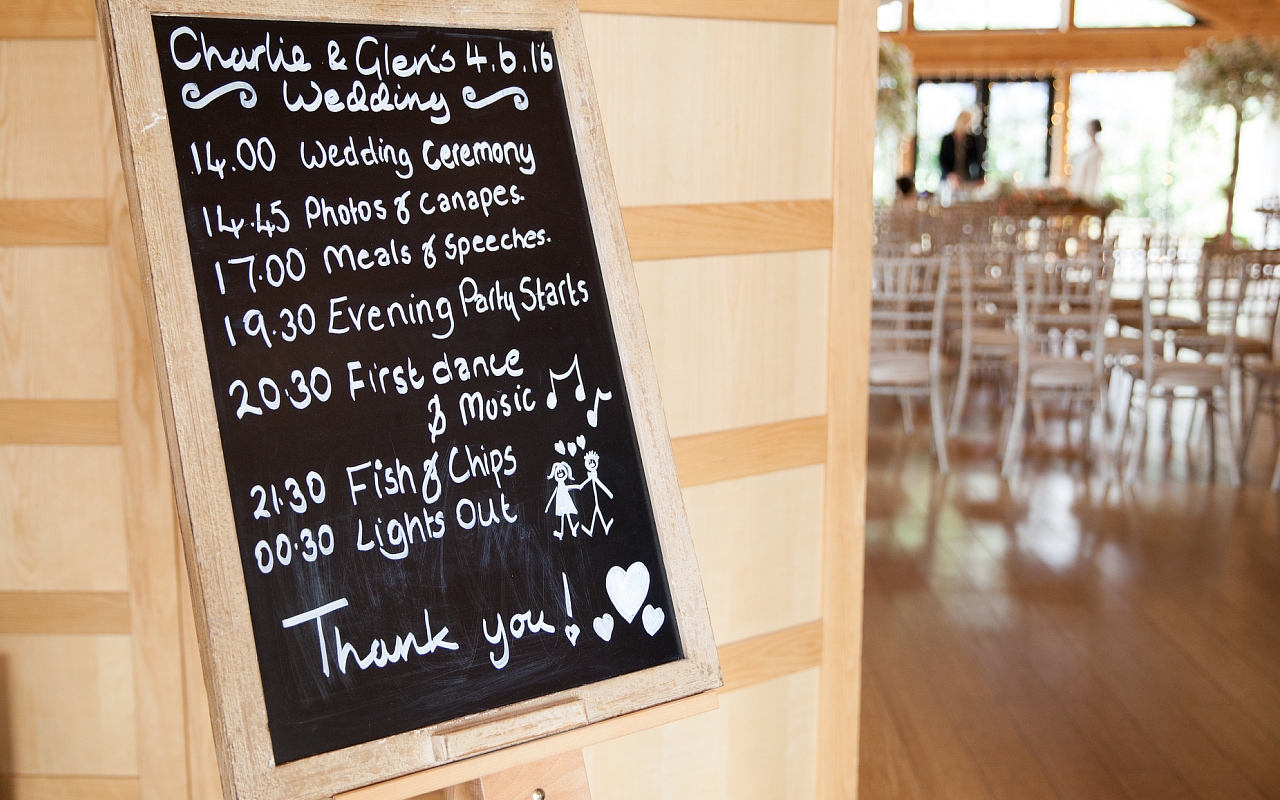 Charlie & Glen's 4.6.16
Wedding
14.00 Wedding Ceremony
14.45 Photos & canapes.
17.00 Meals & Speeches.
19.30 Evening Party Starts
20.30 First dance
& Music
21.30 Fish & Chips
00.30 Lights Out
Thank you!